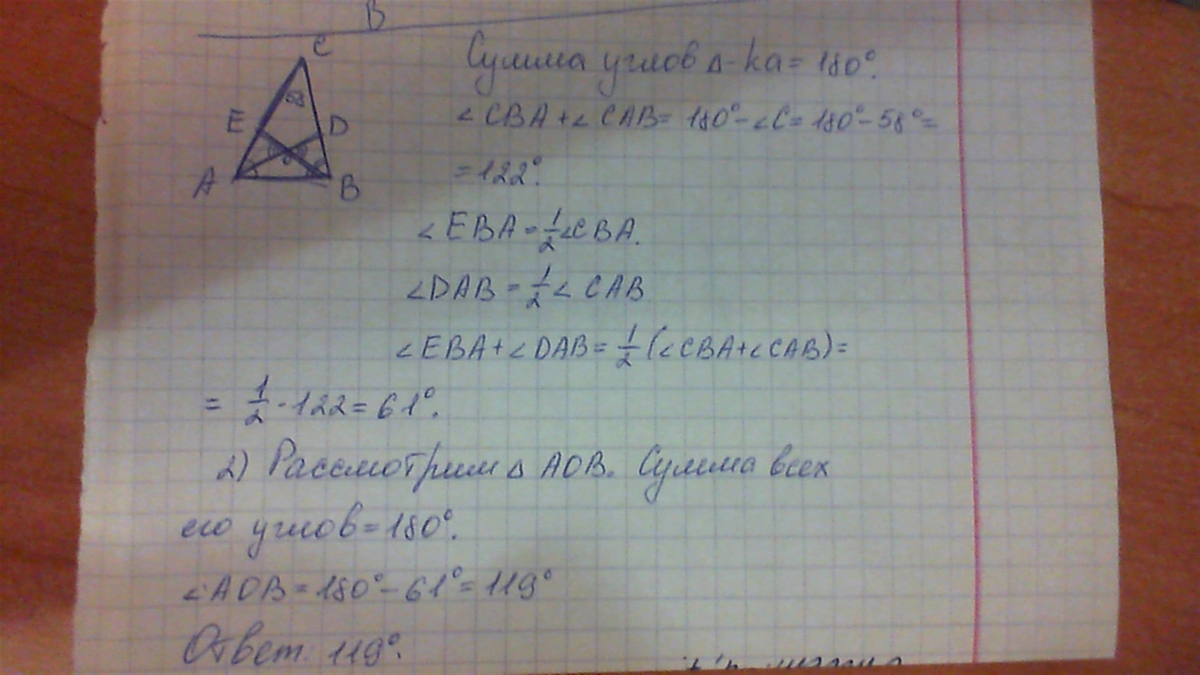 B
C
58
E
D
A
B
Сумма углов Δ-ka = 180°.
∠CBA + ∠CAB = 180° - ∠C = 180° - 58° =
= 122°.
∠EBA = 1/2 ∠CBA.
∠DAB = 1/2 ∠CAB
∠EBA + ∠DAB = 1/2 (∠CBA + ∠CAB) =
= 1/2 · 122 = 61°.
2) Рассмотрим Δ AOB. Сумма всех
его углов = 180°.
∠AOB = 180° - 61° = 119°
Ответ: 119°.